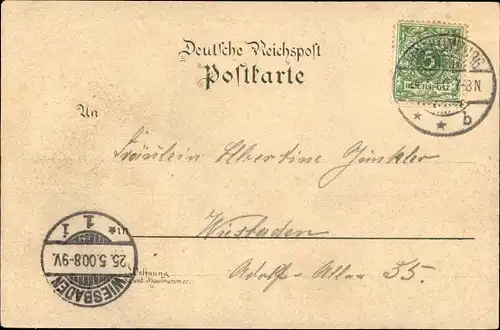 Deutsche Reichspost
Postkarte
5
REICHSPOST
7-8N
* * b
An
Fräulein Albertine Günkler
in
Wiesbaden
Adolf-Allee 55.
Wohnung
und Hausnummer
* 1 i
25.5.00.8-9V.
WIESBADEN